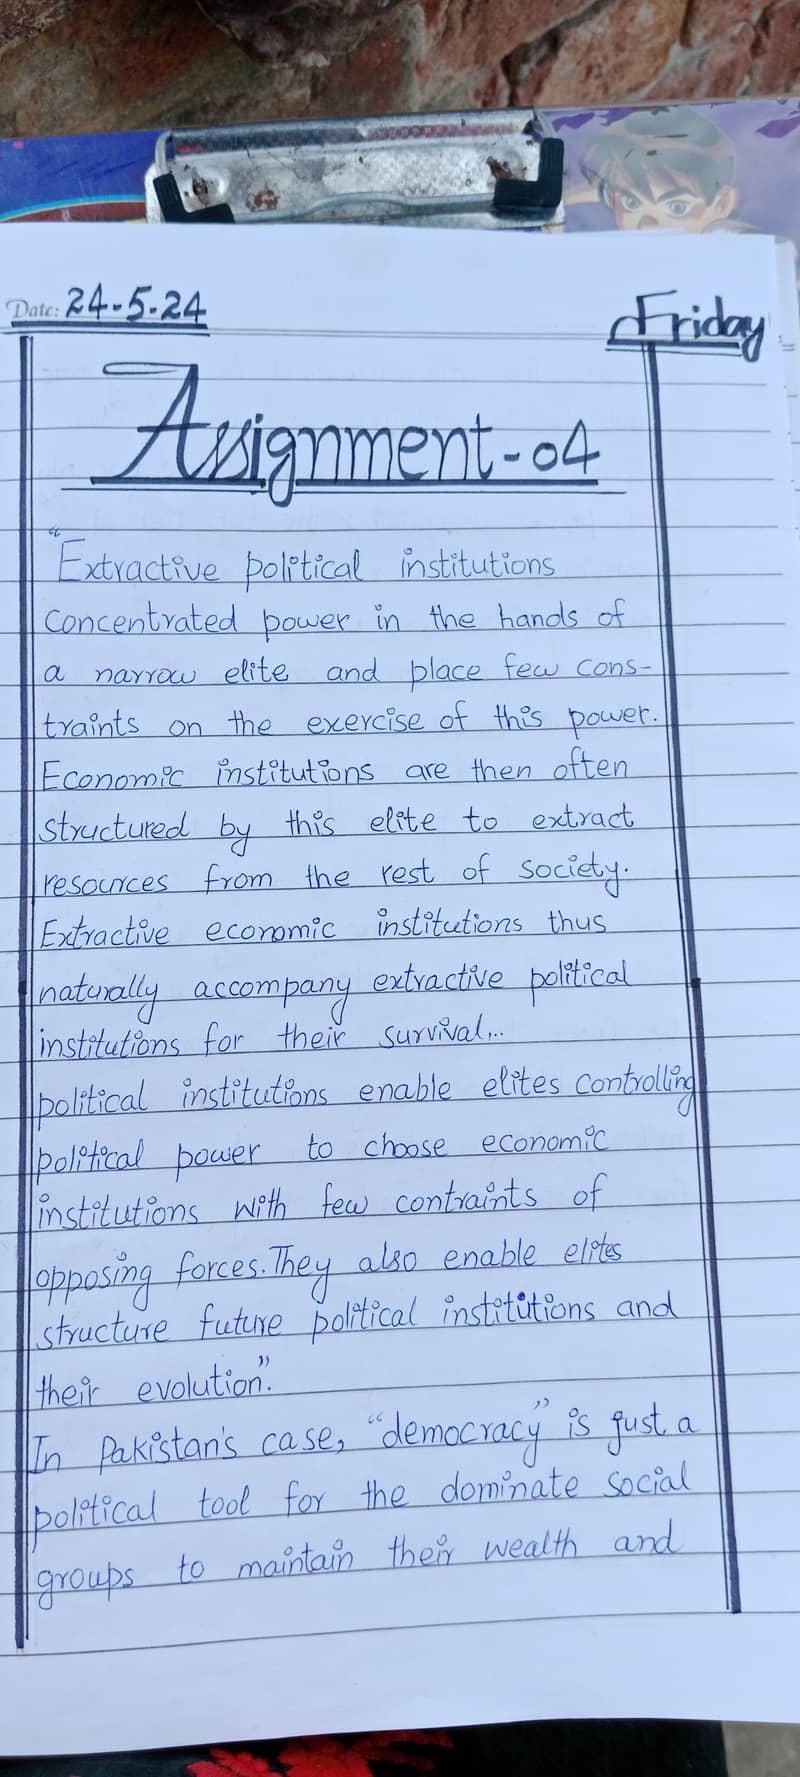 Date: 24-5-24
Friday
Assignment-04
"Extractive political institutions
concentrated power in the hands of
a narrow elite and place few cons-
traints on the exercise of this power.
Economic institutions are then often
structured by this elite to extract
resources from the rest of society.
Extractive economic institutions thus
naturally accompany extractive political
institutions for their survival...
political institutions enable elites controlling
political power to choose economic
institutions with few contraints of
opposing forces. They also enable elites
structure future political institutions and
their evolution."
In Pakistan's case, "democracy" is just a
political tool for the dominate social
groups to maintain their wealth and